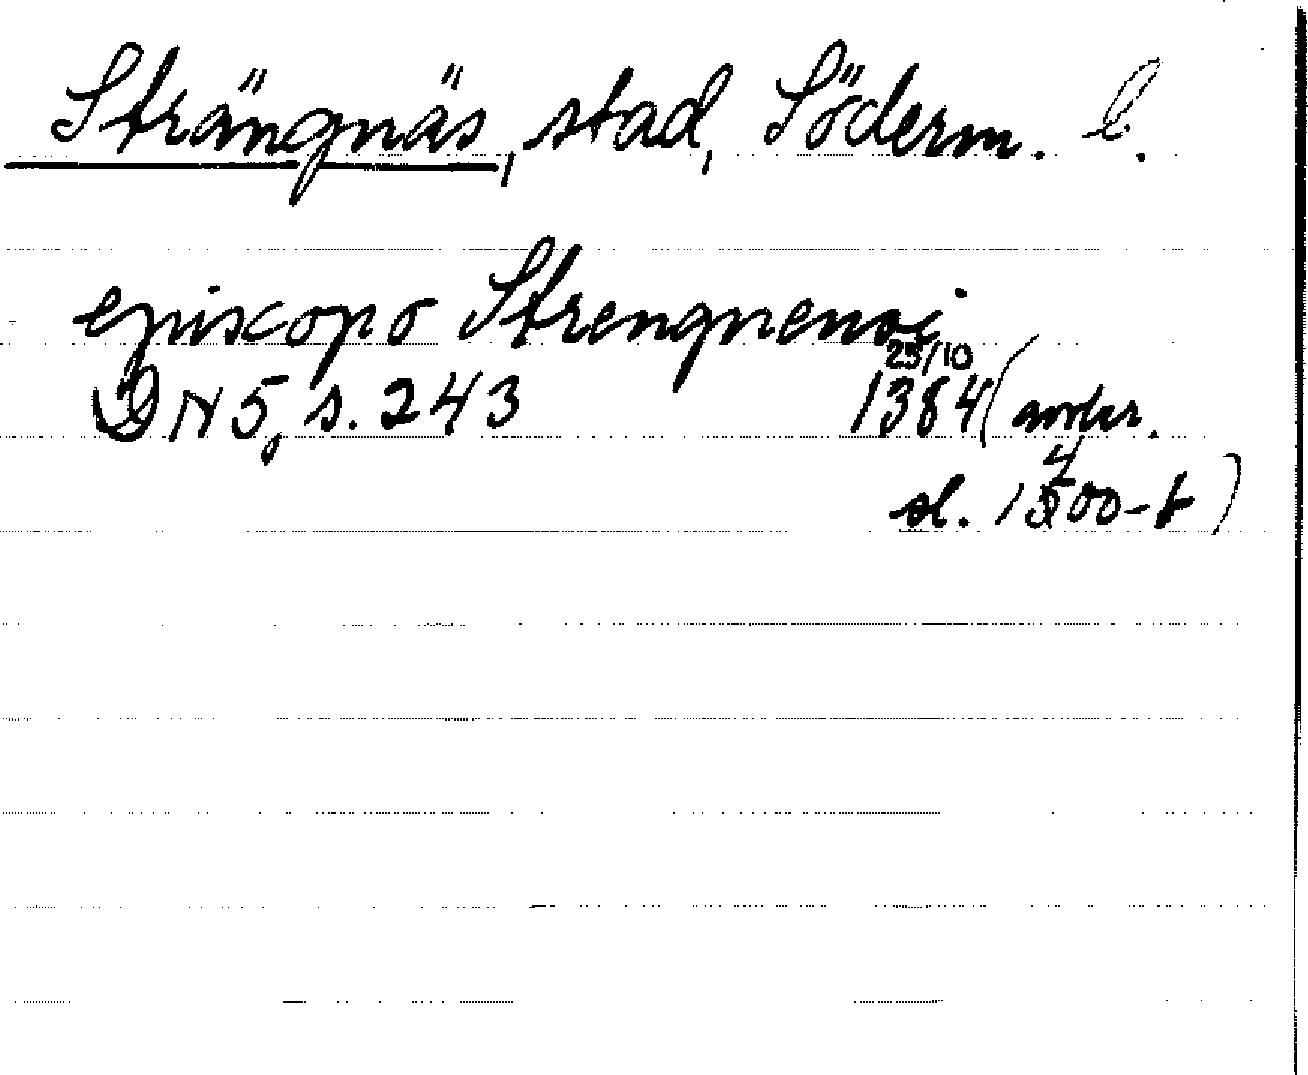 Strängnäs, stad, Söderm. l.
episcopo Strengnensi
25/10
DN 5, s. 243 1384 (avskr.
4
sl. 1500-t)